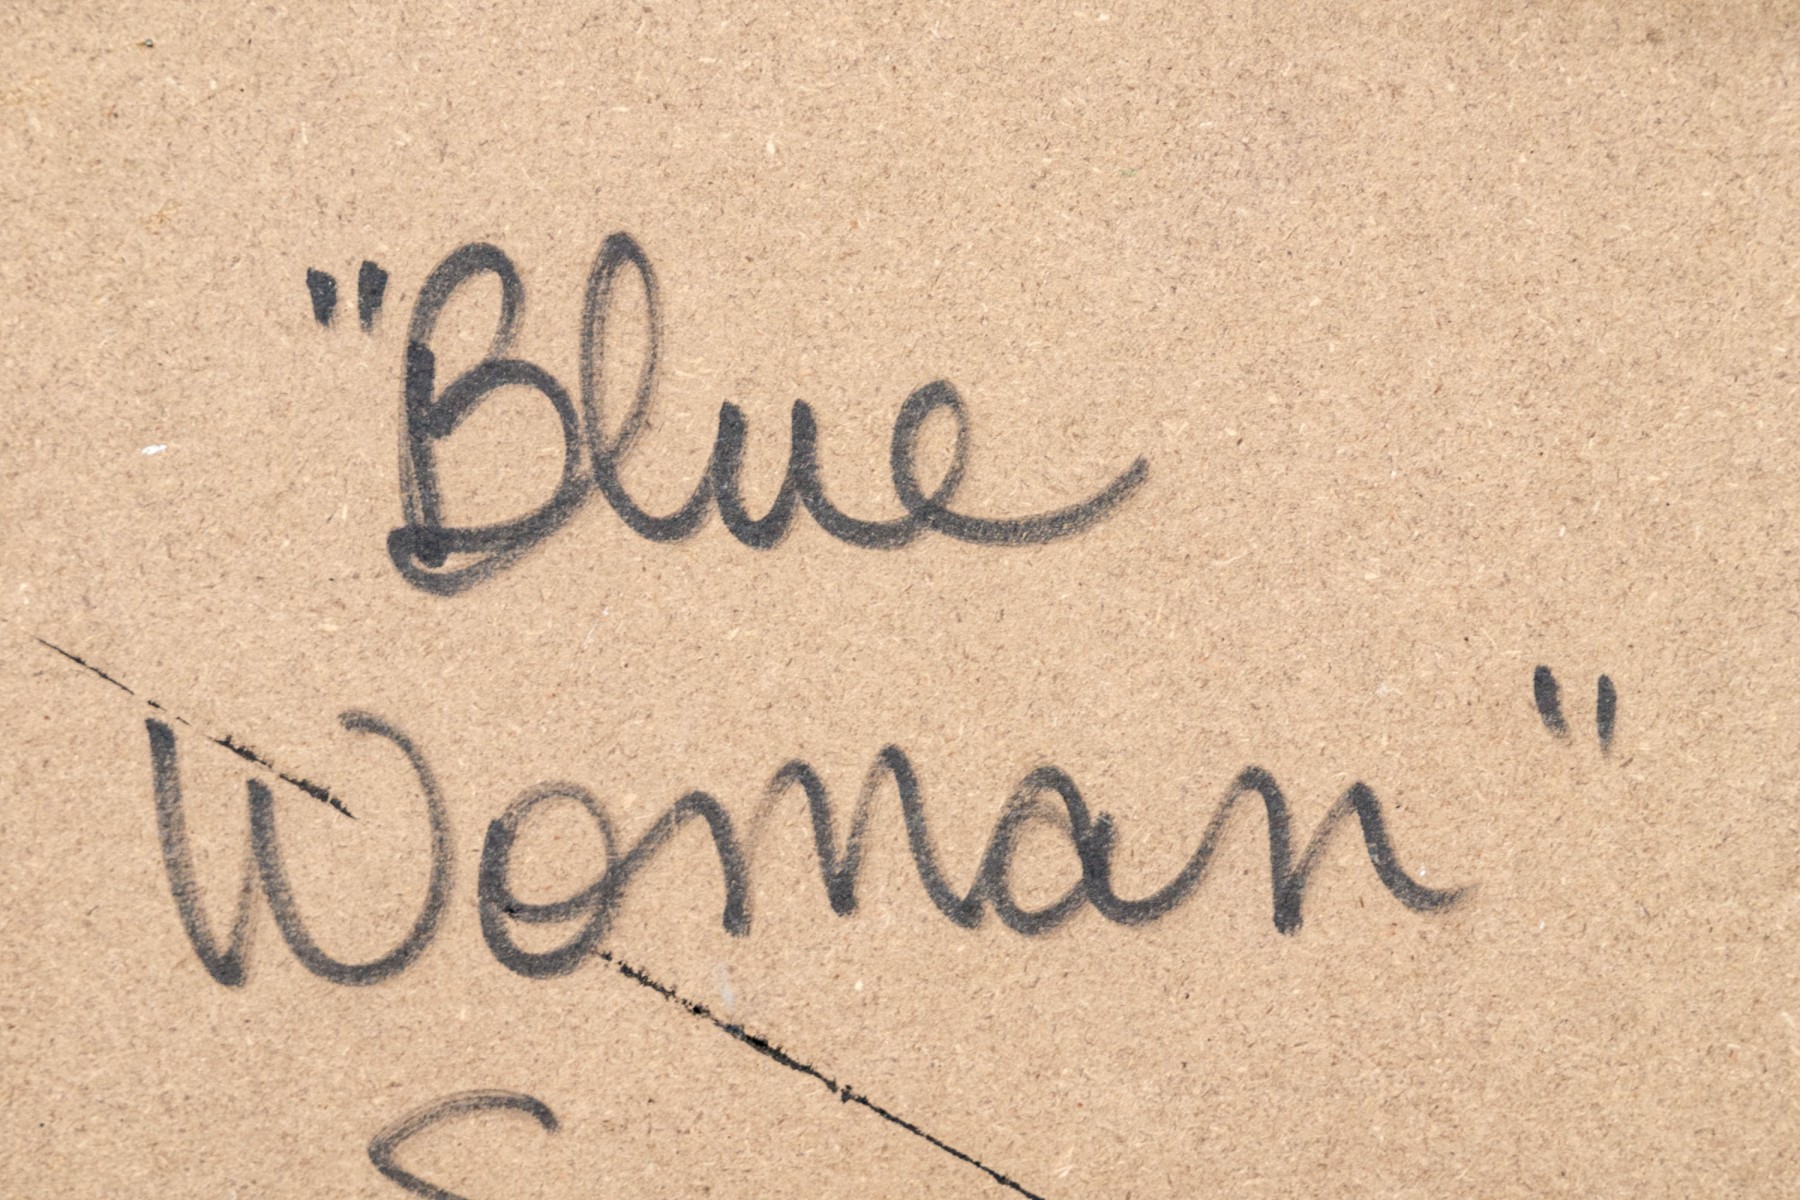 "Blue
Woman"